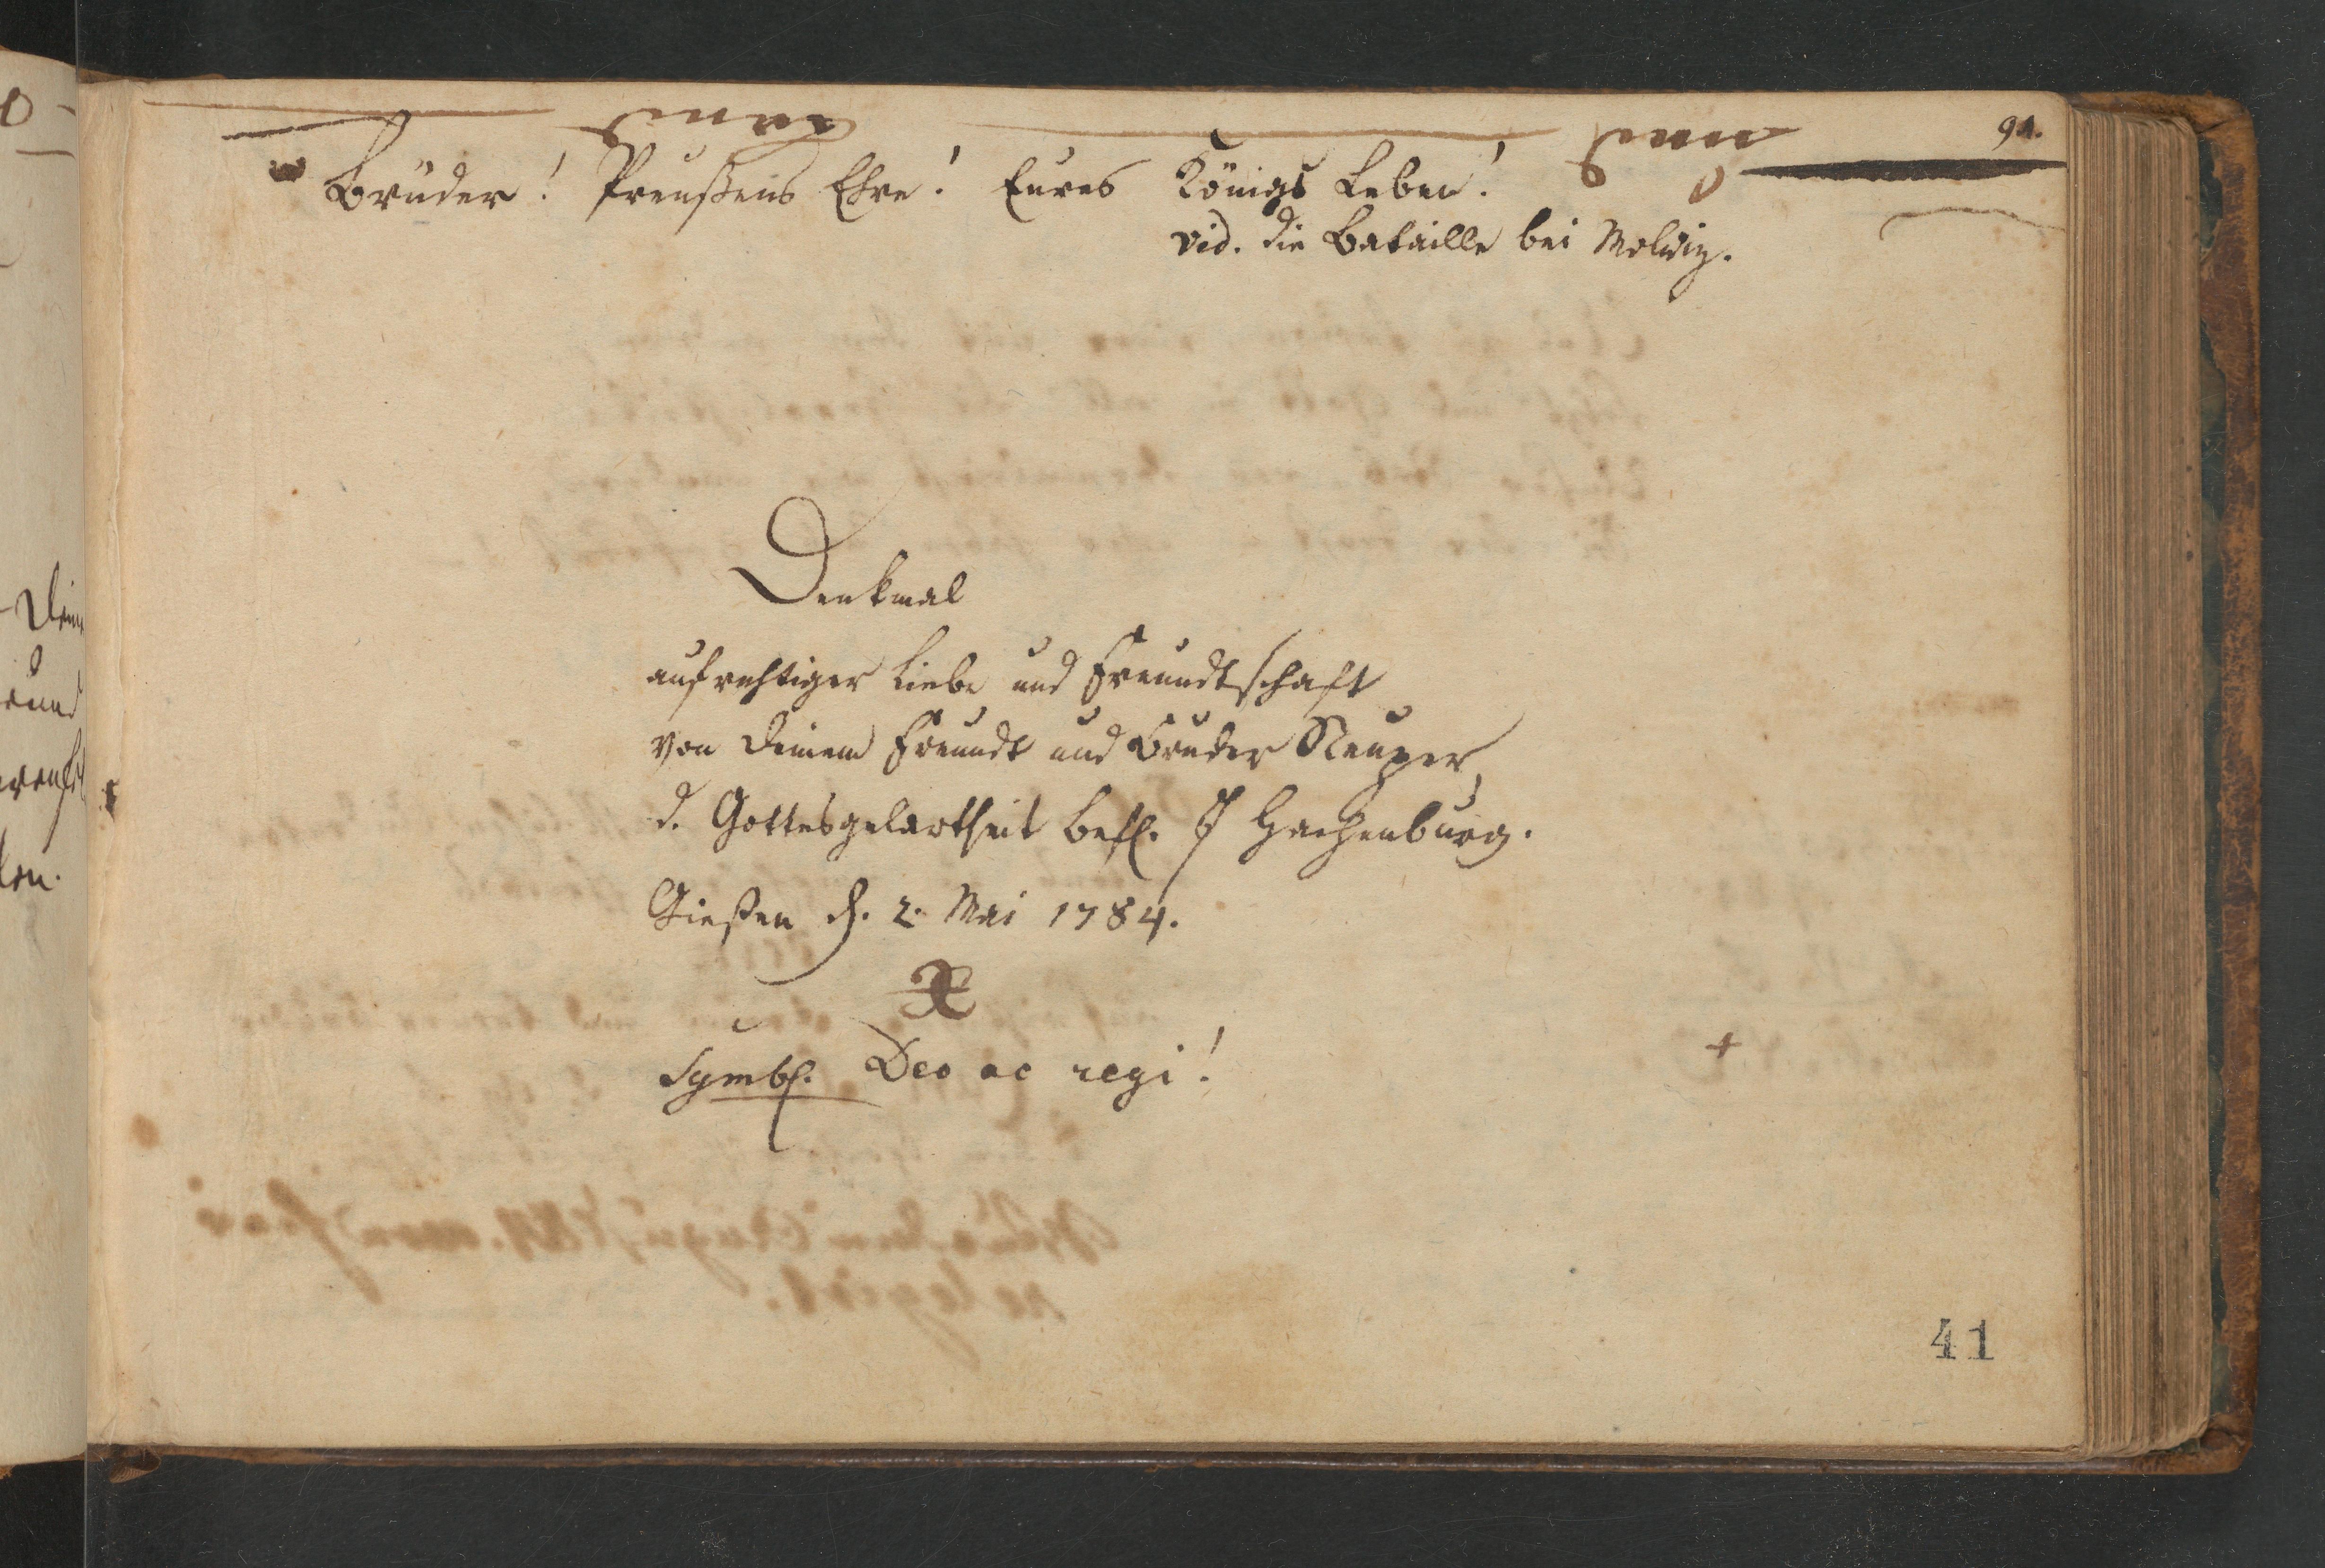 91.
Brüder! Preußens Ehre! Eures Königs Leben!
vid. die Bataille bei Molwiz.
Denkmal
aufrechtiger Liebe und Freundtschaft
von Deinem Freundt und Bruder Neuzer,
d. Gottesgelartheit Befl. Hachenburg.
Gießen d. 2. Mai 1784.
Symb. Deo ac regi!
41